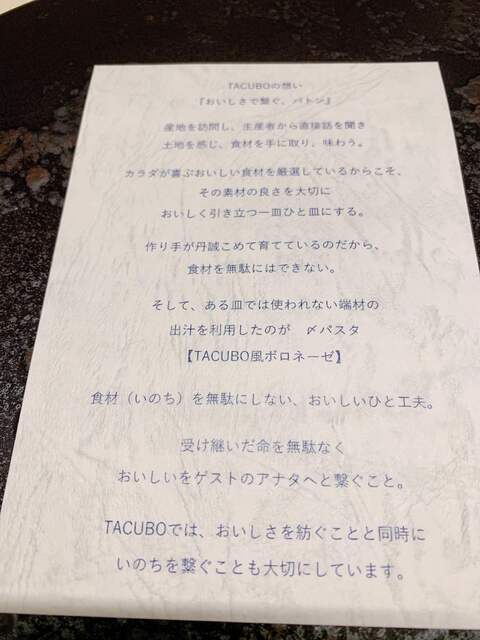 TACUBOの想い
『おいしさで繋ぐ、バトン』
産地を訪問し、生産者から直接話を聞き
土地を感じ、食材を手に取り、味わう。
カラダが喜ぶおいしい食材を厳選しているからこそ、
その素材の良さを大切に
おいしく引き立つ一皿ひと皿にする。
作り手が丹誠こめて育てているのだから、
食材を無駄にはできない。
そして、ある皿では使われない端材の
出汁を利用したのが　〆パスタ
【TACUBO風ボロネーゼ】
食材（いのち）を無駄にしない、おいしいひと工夫。
受け継いだ命を無駄なく
おいしいをゲストのアナタへと繋ぐこと。
TACUBOでは、おいしさを紡ぐことと同時に
いのちを繋ぐことも大切にしています。